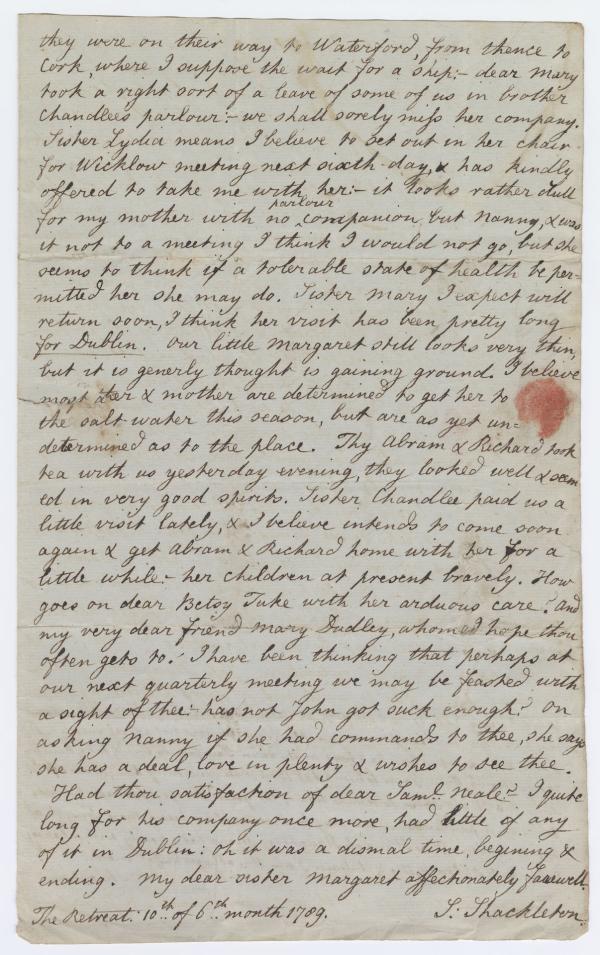 they were on their way to Waterford, from thence to
Cork, where I suppose the wait for a ship:- dear Mary
took a right sort of a leave of some of us in brother
Chandlees parlour:- we shall sorely miss her company.
Sister Lydia means I believe to set out in her chair
for Wicklow meeting next sixth day, & has kindly
offered to take me with her:- it looks rather dull
parlour
for my mother with no companion but Nanny, & was
it not to a meeting I think I would not go, but she
seems to think if a tolerable state of health be per=
mitted her she may do. Sister Mary I expect will
return soon, I think her visit has been pretty long
for Dublin. Our little Margaret still looks very thin,
but it is generly thought is gaining ground. I believe
most & mother are determined to get her to
the salt water this season, but are as yet un=
determined as to the place. Thy Abram & Richard took
tea with us yesterday evening, they looked well & seem
ed in very good spirits. Sister Chandlee paid us a
little visit lately, & I believe intends to come soon
again & get Abram & Richard home with her for a
little while:- her children at present bravely. How
goes on dear Betsy Tuke with her arduous care? and
my very dear friend Mary Dudley, whom I hope thou
often gets to? I have been thinking that perhaps at
our next quarterly meeting we may be feasted with
a sight of thee:- has not John got suck enough? On
asking Nanny if she had commands to thee, she says
she has a deal, love in plenty & wishes to see thee.
Had thou satisfaction of dear Saml. Neale? I quite
long for his company once more, had little if any
of it in Dublin: oh it was a dismal time, begining &
ending. My dear sister Margaret affectionately farewell.
The Retreat: 10th of 6th month 1789. S: Shackleton.